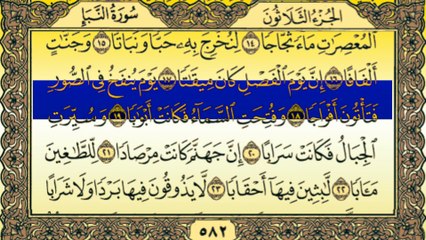 الجُزْءُ الثَّلَاثُونَ سُورَةُ النَّبَإِ
ٱلْمُعْصِرَٰتِ مَآءً ثَجَّاجًا ١٤ لِّنُخْرِجَ بِهِۦ حَبًّا وَنَبَاتًا ١٥ وَجَنَّٰتٍ
أَلْفَافًا ١٦ إِنَّ يَوْمَ ٱلْفَصْلِ كَانَ مِيقَٰتًا ١٧ يَوْمَ يُنفَخُ فِى ٱلصُّورِ
فَتَأْتُونَ أَفْوَاجًا ١٨ وَفُتِحَتِ ٱلسَّمَآءُ فَكَانَتْ أَبْوَٰبًا ١٩ وَسُيِّرَتِ
ٱلْجِبَالُ فَكَانَتْ سَرَابًا ٢٠ إِنَّ جَهَنَّمَ كَانَتْ مِرْصَادًا ٢١ لِّلطَّٰغِينَ
مَـَٔابًا ٢٢ لَّٰبِثِينَ فِيهَآ أَحْقَابًا ٢٣ لَّا يَذُوقُونَ فِيهَا بَرْدًا وَلَا شَرَابًا
٥٨٢